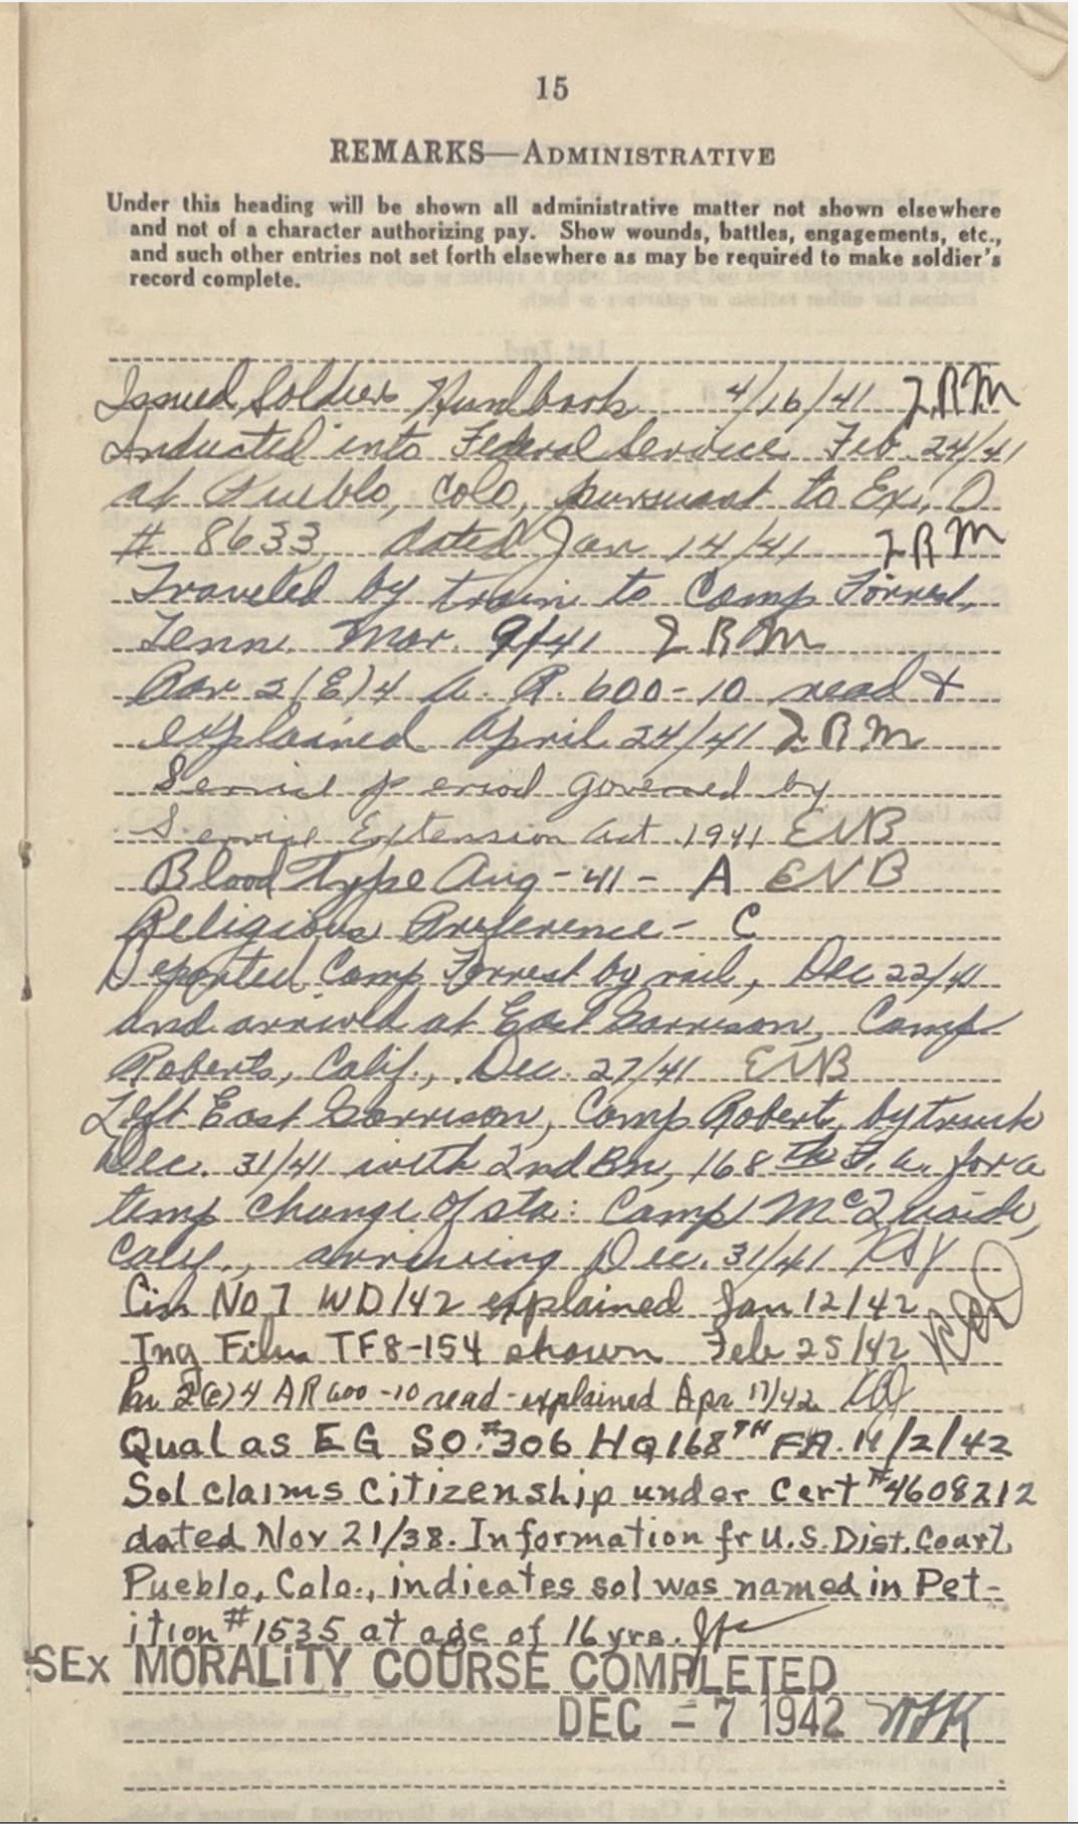 15
REMARKS—ADMINISTRATIVE
Under this heading will be shown all administrative matter not shown elsewhere
and not of a character authorizing pay. Show wounds, battles, engagements, etc.,
and such other entries not set forth elsewhere as may be required to make soldier's
record complete.
Issued Soldiers Handbook 4/16/41 JRM
Inducted into Federal Service Feb. 24/41
at Pueblo, Colo, pursuant to Ex. O
# 8633 dated Jan 14/41 JRM
Traveled by train to Camp Forrest,
Tenn. Mar. 9/41 JRM
Par 2(E)4 A. R. 600-10 read &
explained April 24/41 JRM
Service period governed by
Service Extension Act 1941 ENB
Blood Type Aug-41- A ENB
Religious Preference- C
Departed Camp Forrest by rail, Dec 22/41
and arrived at East Garrison, Camp
Roberts, Calif., Dec. 27/41 ENB
Left East Garrison, Camp Roberts, by truck
Dec. 31/41 with 2nd Bn, 168th F. A. for a
temp change of sta: Camp McQuaide,
Calif., arriving Dec. 31/41
Cir No 7 WD/42 explained Jan 12/42
Tng Film TF8-154 shown Feb 25/42
Par 2(E)4 AR 600-10 read-explained Apr 17/42
Qual as EG SO.#306 HQ 168TH FA. 11/2/42
Sol claims Citizenship under Cert #4608212
dated Nov 21/38. Information fr U.S. Dist. Court,
Pueblo, Colo., indicates sol was named in Pet-
ition #1535 at age of 16 yrs.
SEx MORALiTY COURSE COMPLETED
DEC - 7 1942